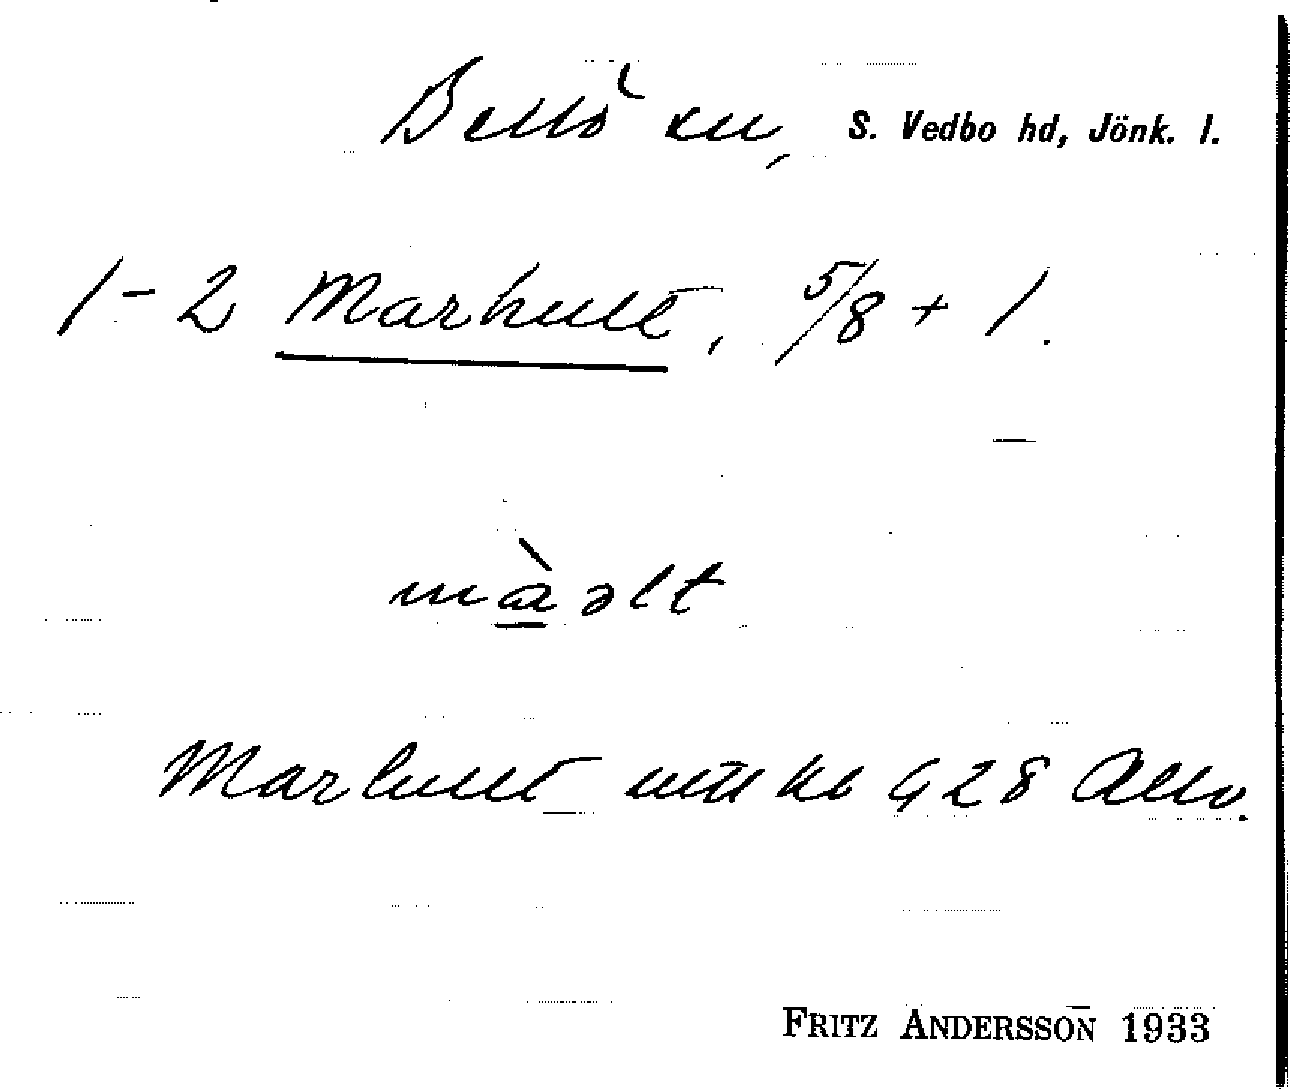 Bellö sn, S. Vedbo hd, Jönk. l.
1-2 Marhult, 5/8 + 1.
màəlt
Marhult
FRITZ ANDERSSON 1933